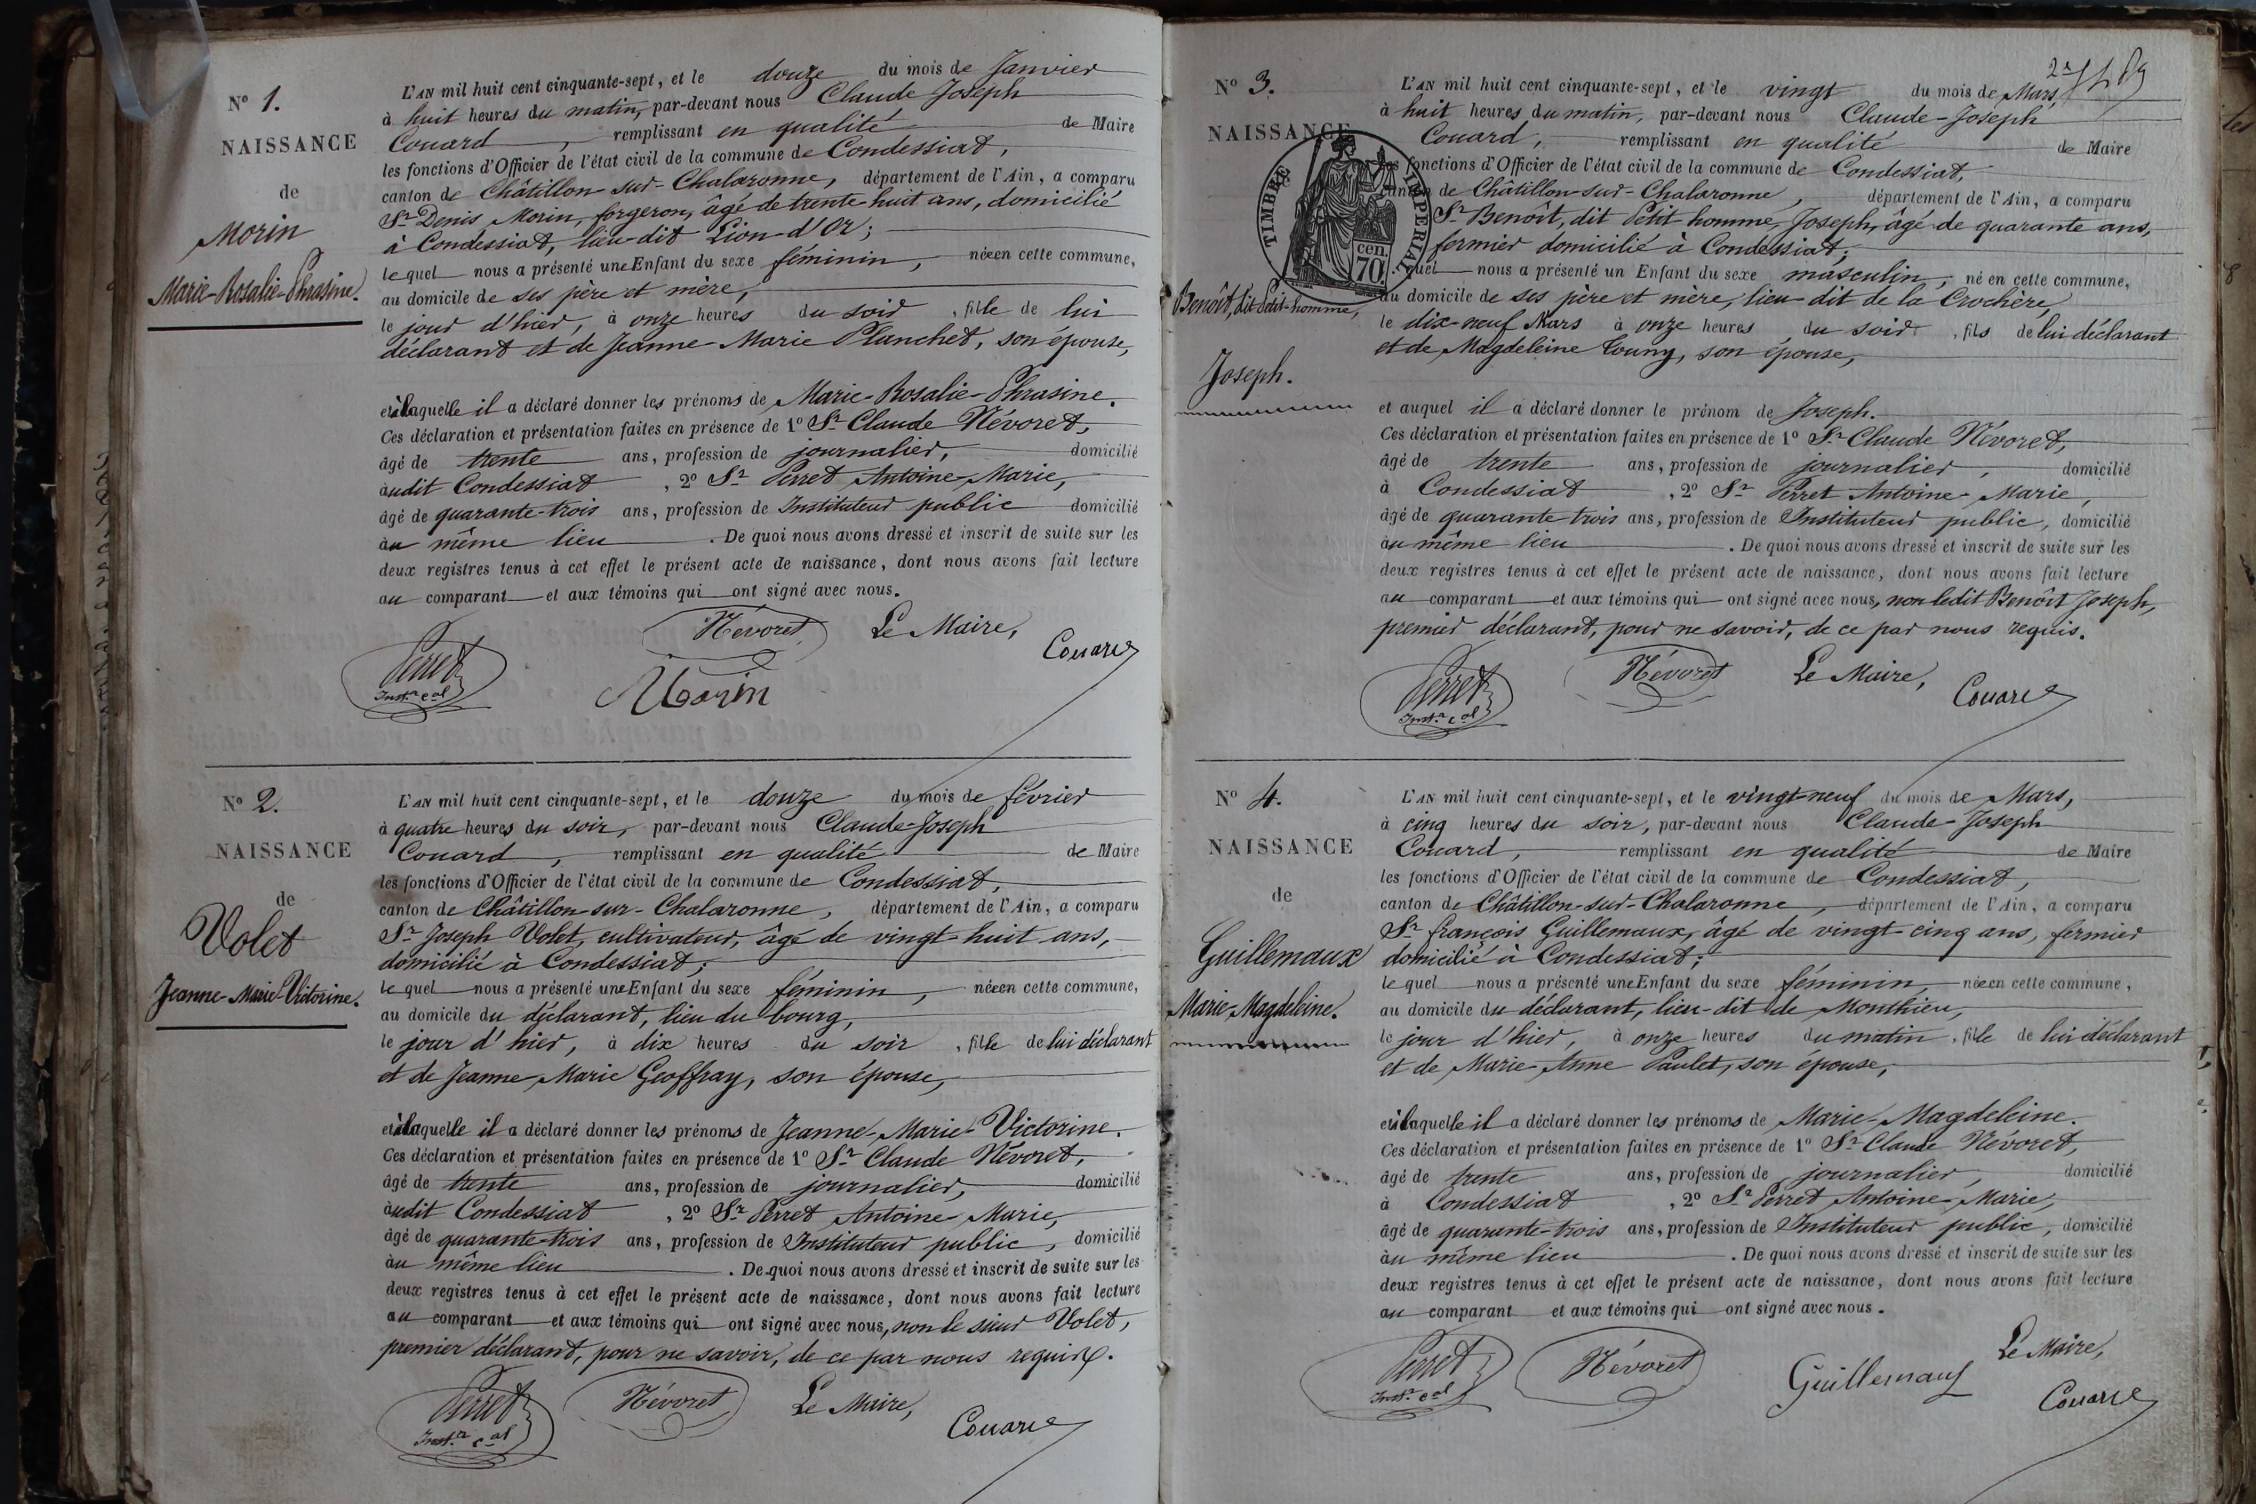 N° 1.
NAISSANCE
de
Morin
Marie-Rosalie-Phrasine.
L'AN mil huit cent cinquante-sept, et le douze du mois de Janvier
à huit heures du matin, par-devant nous Claude Joseph
Couard, remplissant en qualité de Maire
les fonctions d'Officier de l'état civil de la commune de Condessiat,
canton de Châtillon-sur-Chalaronne, département de l'Ain, a comparu
Sr Denis Morin, forgeron, âgé de trente-huit ans, domicilié
à Condessiat, lieu-dit Lion-d'Or;
lequel nous a présenté une Enfant du sexe féminin, née en cette commune,
au domicile de ses père et mère,
le jour d'hier, à onze heures du soir, fille de lui
déclarant et de Jeanne-Marie Planchet, son épouse,
et à laquelle il a déclaré donner les prénoms de Marie-Rosalie-Phrasine.
Ces déclaration et présentation faites en présence de 1° Sr Claude Névoret,
âgé de trente ans, profession de journalier, domicilié
audit Condessiat, 2° Sr Perret Antoine-Marie,
âgé de quarante-trois ans, profession de Instituteur public domicilié
au même lieu. De quoi nous avons dressé et inscrit de suite sur les
deux registres tenus à cet effet le présent acte de naissance, dont nous avons fait lecture
au comparant et aux témoins qui ont signé avec nous.
Névoret Le Maire,
Perret Couard
Instr cal Morin
N° 2.
NAISSANCE
de
Volet
Jeanne-Marie-Victorine.
L'AN mil huit cent cinquante-sept, et le douze du mois de février
à quatre heures du soir, par-devant nous Claude-Joseph
Couard, remplissant en qualité de Maire
les fonctions d'Officier de l'état civil de la commune de Condessiat,
canton de Châtillon-sur-Chalaronne, département de l'Ain, a comparu
Sr Joseph Volet, cultivateur, âgé de vingt-huit ans,
domicilié à Condessiat;
lequel nous a présenté une Enfant du sexe féminin, née en cette commune,
au domicile du déclarant, lieu du bourg,
le jour d'hier, à dix heures du soir, fille de lui déclarant
et de Jeanne Marie Geoffray, son épouse,
et à laquelle il a déclaré donner les prénoms de Jeanne-Marie-Victorine.
Ces déclaration et présentation faites en présence de 1° Sr Claude Névoret,
âgé de trente ans, profession de journalier, domicilié
audit Condessiat, 2° Sr Perret Antoine-Marie,
âgé de quarante-trois ans, profession de Instituteur public, domicilié
au même lieu. De quoi nous avons dressé et inscrit de suite sur les
deux registres tenus à cet effet le présent acte de naissance, dont nous avons fait lecture
au comparant et aux témoins qui ont signé avec nous, non le sieur Volet,
premier déclarant, pour ne savoir, de ce par nous requis.
Perret Névoret Le Maire,
Instr cal Couard
N° 3.
NAISSANCE
TIMBRE IMPERIAL
70 cen
Benoît, dit Petit-homme,
Joseph.
L'AN mil huit cent cinquante-sept, et le vingt du mois de Mars,
à huit heures du matin, par-devant nous Claude-Joseph
Couard, remplissant en qualité de Maire
les fonctions d'Officier de l'état civil de la commune de Condessiat,
canton de Châtillon-sur-Chalaronne, département de l'Ain, a comparu
Sr Benoît, dit Petit homme, Joseph, âgé de quarante ans,
fermier domicilié à Condessiat;
lequel nous a présenté un Enfant du sexe masculin, né en cette commune,
au domicile de ses père et mère, lieu-dit de la Crochère,
le dix-neuf Mars à onze heures du soir, fils de lui déclarant
et de Magdeleine Touny, son épouse,
et auquel il a déclaré donner le prénom de Joseph.
Ces déclaration et présentation faites en présence de 1° Sr Claude Névoret,
âgé de trente ans, profession de journalier, domicilié
à Condessiat, 2° Sr Perret Antoine-Marie,
âgé de quarante-trois ans, profession de Instituteur public, domicilié
au même lieu. De quoi nous avons dressé et inscrit de suite sur les
deux registres tenus à cet effet le présent acte de naissance, dont nous avons fait lecture
au comparant et aux témoins qui ont signé avec nous, non ledit Benoît Joseph,
premier déclarant, pour ne savoir, de ce par nous requis.
Perret Névoret Le Maire,
Instr cal Couard
N° 4.
NAISSANCE
de
Guillemaux
Marie-Magdeleine.
L'AN mil huit cent cinquante-sept, et le vingt-neuf du mois de Mars,
à cinq heures du soir, par-devant nous Claude-Joseph
Couard, remplissant en qualité de Maire
les fonctions d'Officier de l'état civil de la commune de Condessiat,
canton de Châtillon-sur-Chalaronne, département de l'Ain, a comparu
Sr françois Guillemaux, âgé de vingt-cinq ans, fermier
domicilié à Condessiat;
lequel nous a présenté une Enfant du sexe féminin, née en cette commune,
au domicile du déclarant, lieu-dit de Monthieu,
le jour d'hier, à onze heures du matin, fille de lui déclarant
et de Marie-Anne Paulet, son épouse,
et à laquelle il a déclaré donner les prénoms de Marie-Magdeleine.
Ces déclaration et présentation faites en présence de 1° Sr Claude Névoret,
âgé de trente ans, profession de journalier, domicilié
à Condessiat, 2° Sr Perret Antoine-Marie,
âgé de quarante-trois ans, profession de Instituteur public, domicilié
au même lieu. De quoi nous avons dressé et inscrit de suite sur les
deux registres tenus à cet effet le présent acte de naissance, dont nous avons fait lecture
au comparant et aux témoins qui ont signé avec nous.
Perret Névoret Guillemaux Le Maire,
Instr cal Couard